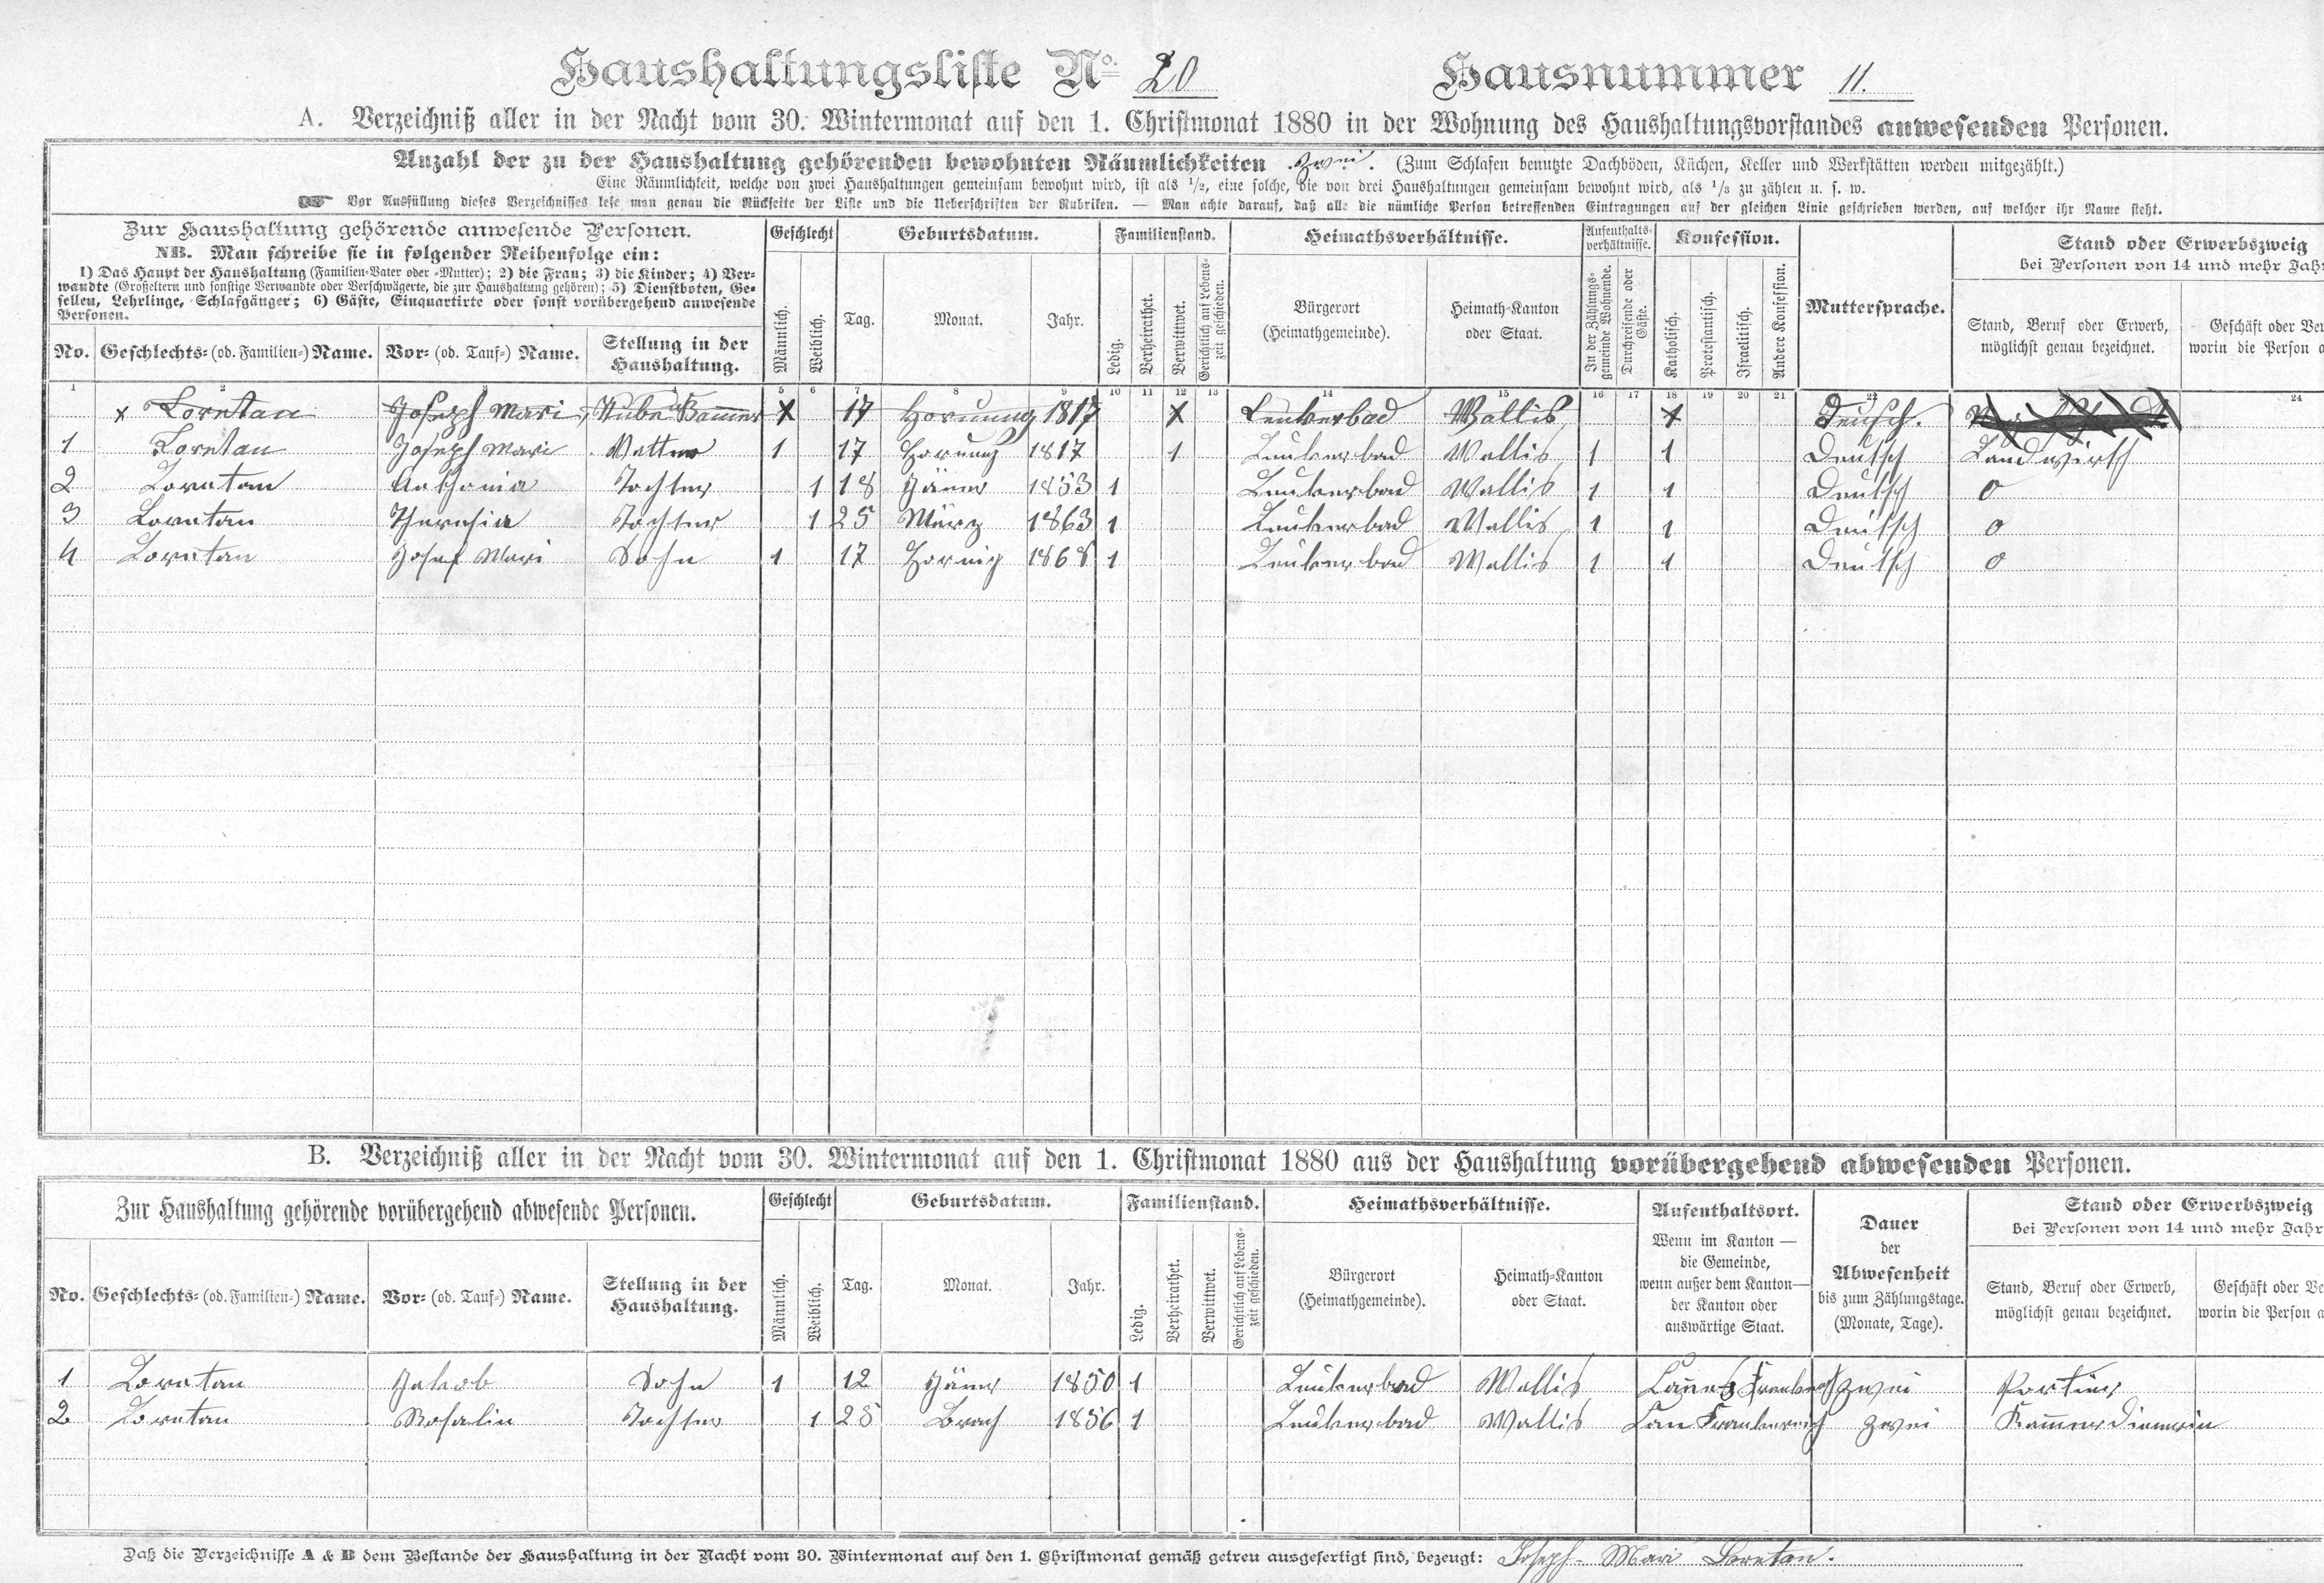 Haushaltungsliste No. 20 Hausnummer 11.
A. Verzeichniß aller in der Nacht vom 30. Wintermonat auf den 1. Christmonat 1880 in der Wohnung des Haushaltungsvorstandes anwesenden Personen.
Anzahl der zu der Haushaltung gehörenden bewohnten Räumlichkeiten zwei. (Zum Schlafen benutzte Dachböden, Küchen, Keller und Werkstätten werden mitgezählt.)
Eine Räumlichkeit, welche von zwei Haushaltungen gemeinsam bewohnt wird, ist als 1/2, eine solche, die von drei Haushaltungen gemeinsam bewohnt wird, als 1/3 zu zählen u. s. w.
Vor Ausfüllung dieses Verzeichnisses lese man genau die Rückseite der Liste und die Ueberschriften der Rubriken. — Man achte darauf, daß alle die nämliche Person betreffenden Eintragungen auf der gleichen Linie geschrieben werden, auf welcher ihr Name steht.
Zur Haushaltung gehörende anwesende Personen.
NB. Man schreibe sie in folgender Reihenfolge ein:
1) Das Haupt der Haushaltung (Familien-Vater oder -Mutter); 2) die Frau; 3) die Kinder; 4) Ver-
wandte (Großeltern und sonstige Verwandte oder Verschwägerte, die zur Haushaltung gehören); 5) Dienstboten, Ge-
sellen, Lehrlinge, Schlafgänger; 6) Gäste, Einquartirte oder sonst vorübergehend anwesende
Personen.
No. Geschlechts- (od. Familien-) Name. Vor- (od. Tauf-) Name. Stellung in der
Haushaltung.
Geschlecht
Männlich. Weiblich.
Geburtsdatum.
Tag. Monat. Jahr.
Familienstand.
Ledig. Verheirathet. Verwittwet. Gerichtlich auf Lebens-
zeit geschieden.
Heimathsverhältnisse.
Bürgerort
(Heimathgemeinde).
Heimath-Kanton
oder Staat.
Aufenthalts-
verhältnisse.
In der Zählungs-
gemeinde Wohnende.
Durchreisende oder
Gäste.
Konfession.
Katholisch. Protestantisch. Israelitisch. Andere Konfession.
Muttersprache.
Stand oder Erwerbszweig
bei Personen von 14 und mehr Jah
Stand, Beruf oder Erwerb,
möglichst genau bezeichnet.
Geschäft oder Ve
worin die Person a
1 2 3 4 5 6 7 8 9 10 11 12 13 14 15 16 17 18 19 20 21 22 24
x Loretan Joseph Mari, x 17 Hornung 1817 x Leukerbad Wallis x Deusch.
1 Loretan Joseph Mari Vatter 1 17 Hornung 1817 1 Leukerbad Wallis 1 1 Deutsch Landwirth
2 Loretan Anthonia Tochter 1 18 Jäner 1853 1 Leukerbad Wallis 1 1 Deutsch 0
3 Loretan Theresia Tochter 1 25 März 1863 1 Leukerbad Wallis 1 1 Deutsch 0
4 Loretan Josef Mari Sohn 1 17 Hornig 1868 1 Leukerbad Wallis 1 1 Deutsch 0
B. Verzeichniß aller in der Nacht vom 30. Wintermonat auf den 1. Christmonat 1880 aus der Haushaltung vorübergehend abwesenden Personen.
Zur Haushaltung gehörende vorübergehend abwesende Personen.
No. Geschlechts- (od. Familien-) Name. Vor- (od. Tauf-) Name. Stellung in der
Haushaltung.
Geschlecht
Männlich. Weiblich.
Geburtsdatum.
Tag. Monat. Jahr.
Familienstand.
Ledig. Verheirathet. Verwittwet. Gerichtlich auf Lebens-
zeit geschieden.
Heimathsverhältnisse.
Bürgerort
(Heimathgemeinde).
Heimath-Kanton
oder Staat.
Aufenthaltsort.
Wenn im Kanton —
die Gemeinde,
wenn außer dem Kanton—
der Kanton oder
auswärtige Staat.
Dauer
der
Abwesenheit
bis zum Zählungstage.
(Monate, Tage).
Stand oder Erwerbszweig
bei Personen von 14 und mehr Jahr
Stand, Beruf oder Erwerb,
möglichst genau bezeichnet.
Geschäft oder Ve
worin die Person a
1 Loretan Jakob Sohn 1 12 Jäner 1850 1 Leukerbad Wallis zwei Portier
2 Loretan Rosalia Tochter 1 25 Brach 1856 1 Leukerbad Wallis Frankreich zwei Kammerdienerin
Daß die Verzeichnisse A & B dem Bestande der Haushaltung in der Nacht vom 30. Wintermonat auf den 1. Christmonat gemäß getreu ausgefertigt sind, bezeugt: Joseph-Mari Loretan.